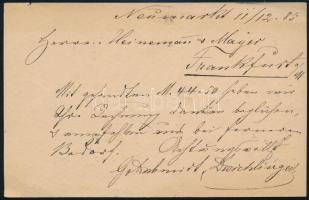 Neumarkt 11/12. 83
Herren Heineman & Mayer
Frankfurt a/M
Mit gesandten M. 44.50 haben wir
Ihre Rechnung dankend beglichen,
& empfehlen uns bei fernerem
Bedarf. Achtungsvollst
Gebr